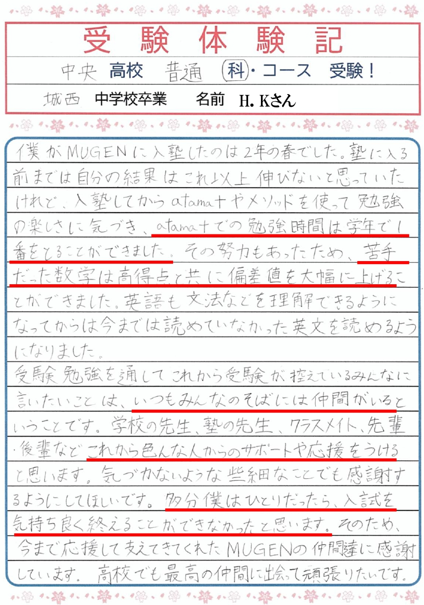 受験体験記
中央 高校 普通 科・コース 受験！
城西 中学校卒業 名前 H.Kさん
僕がMUGENに入塾したのは2年の春でした。塾に入る
前までは自分の結果はこれ以上伸びないと思っていた
けれど、入塾してからatama+やメソッドを使って勉強
の楽しさに気づき、atama+での勉強時間は学年で1
番をとることができました。その努力もあったため、苦手
だった数学は高得点と共に偏差値を大幅に上げるこ
とができました。英語も文法などを理解できるように
なってからは今までは読めていなかった英文を読めるよう
になりました。
受験勉強を通してこれから受験が控えているみんなに
言いたいことは、いつもみんなのそばには仲間がいると
いうことです。学校の先生、塾の先生、クラスメイト、先輩
・後輩などこれから色んな人からのサポートや応援をうける
と思います。気づかないような些細なことでも感謝す
るようにしてほしいです。多分僕はひとりだったら、入試を
気持ち良く終えることができなかったと思います。そのため、
今まで応援して支えてきてくれたMUGENの仲間達に感謝
しています。高校でも最高の仲間に出会って頑張りたいです。